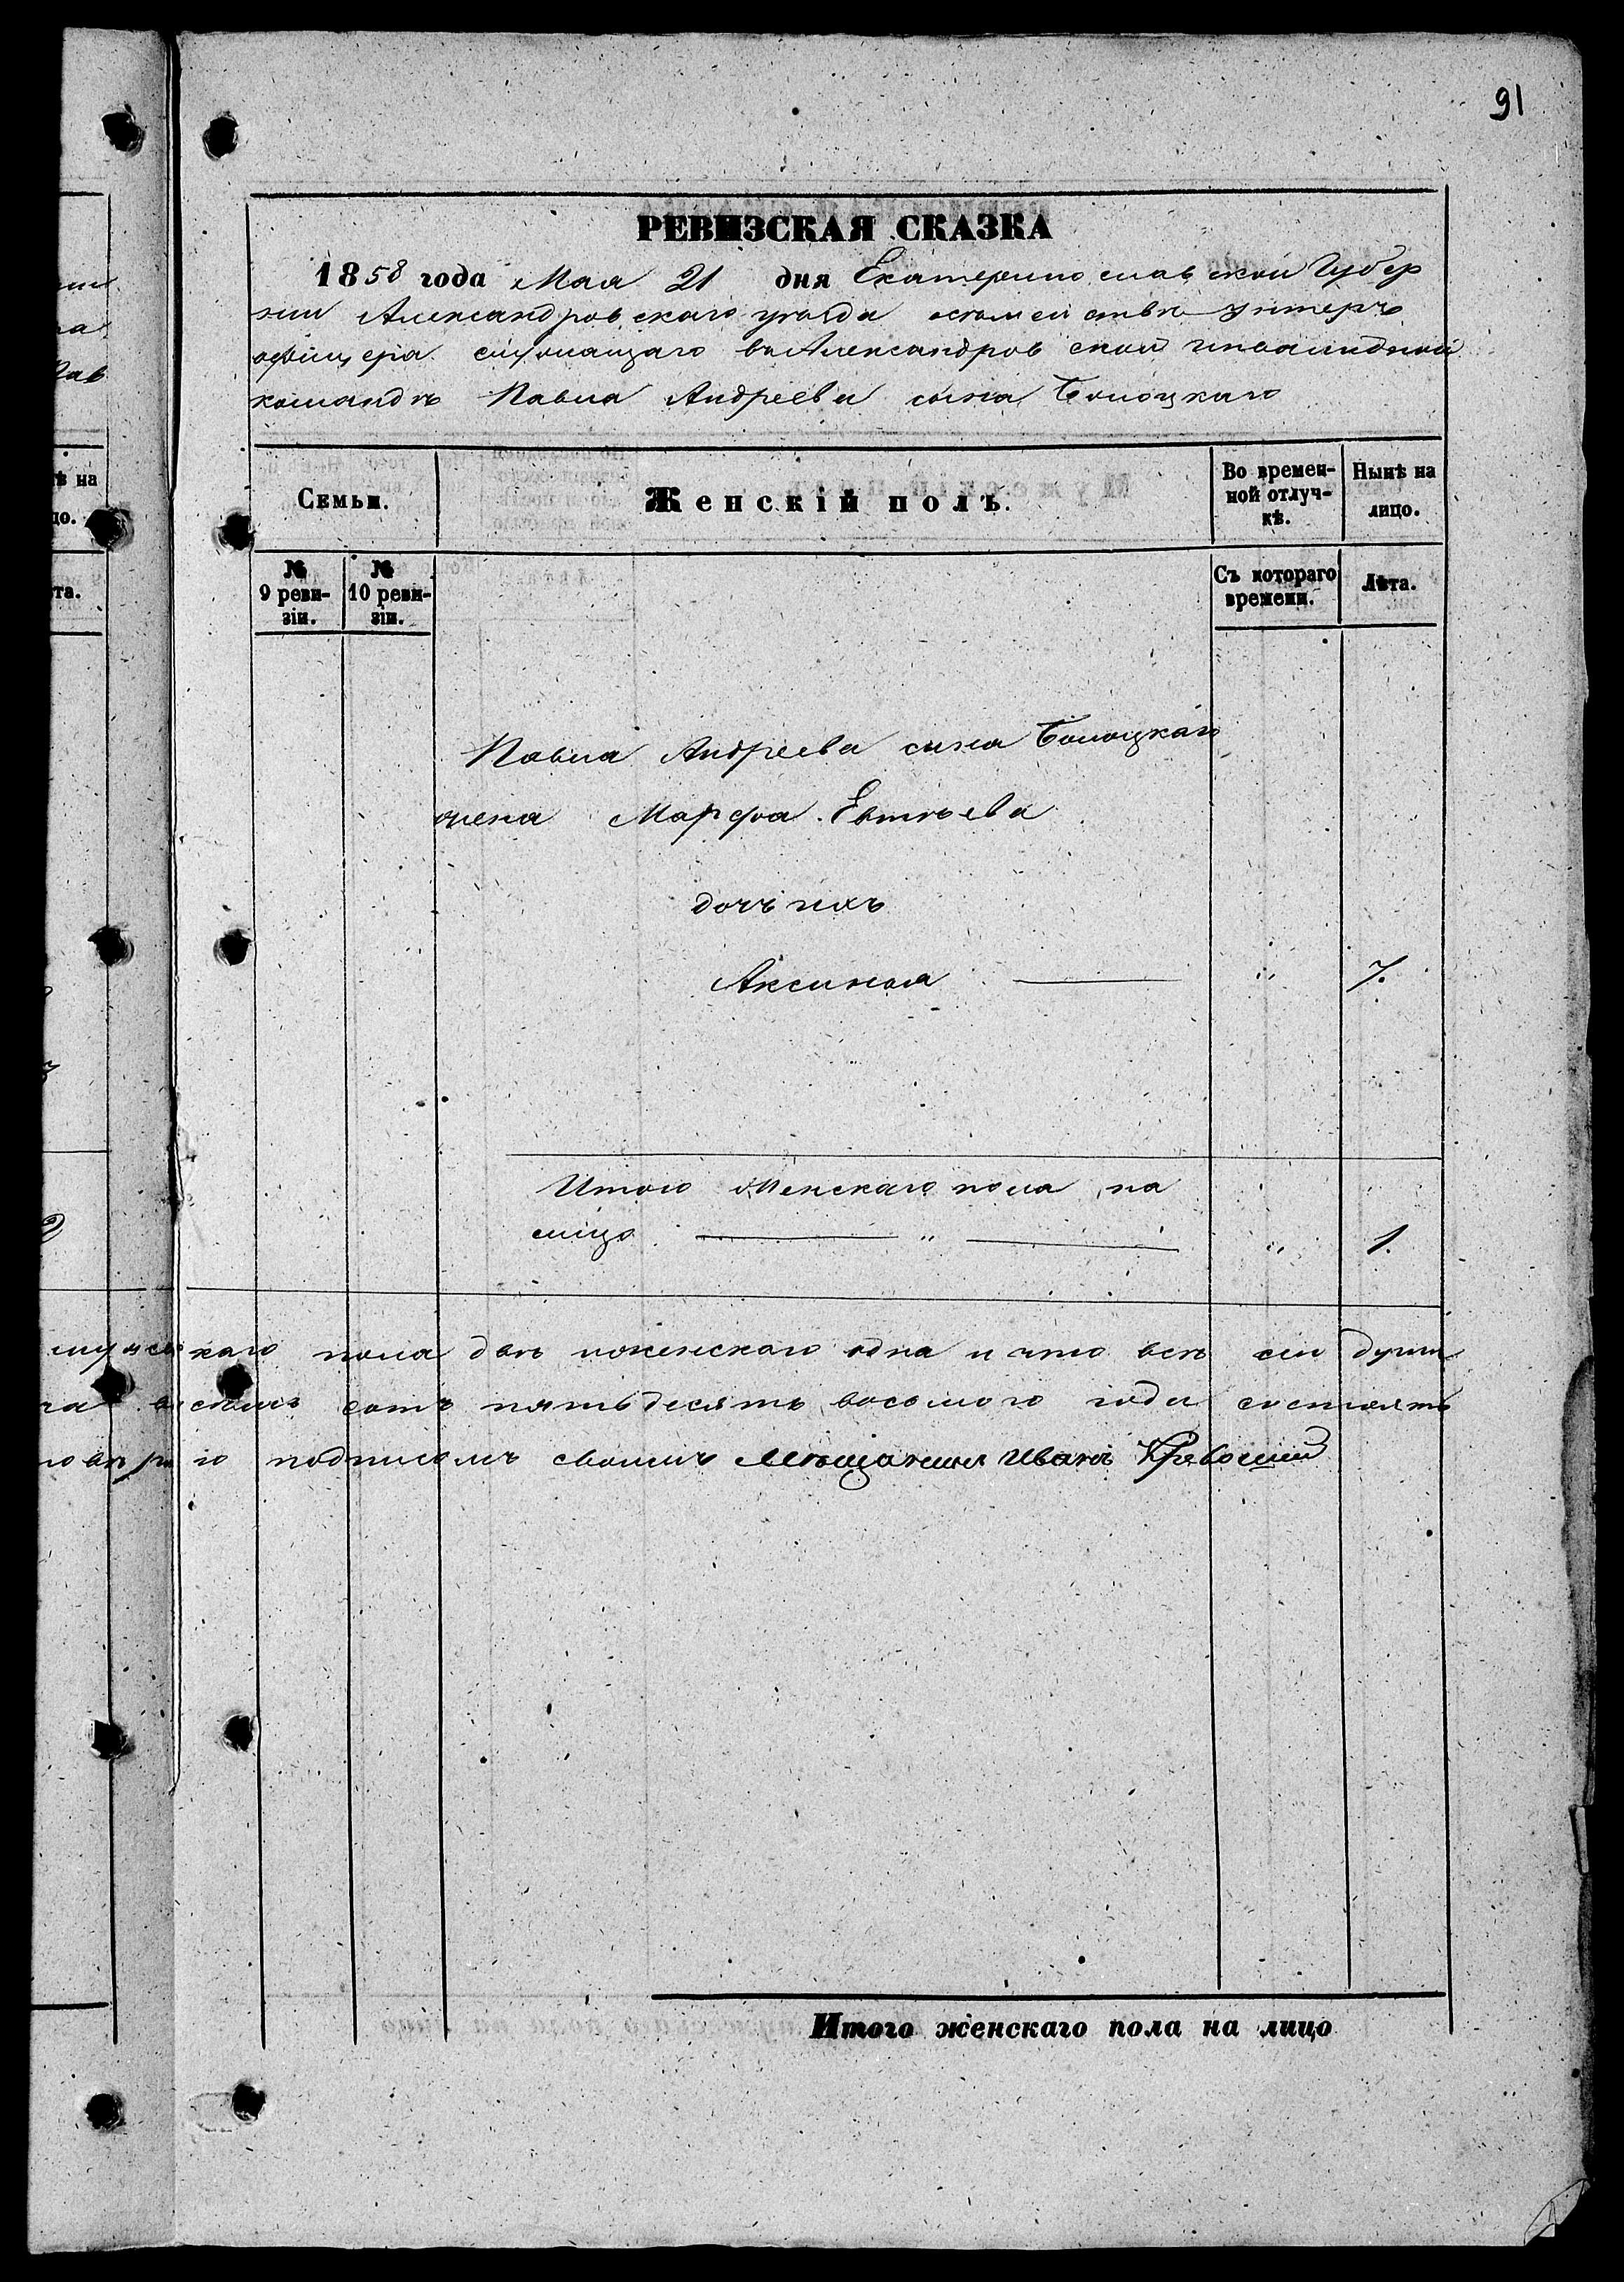 91
РЕВИЗСКАЯ СКАЗКА
1858 года Мая 21 дня Екатеринославской Губер
нии Александровскаго уѣзда осемействѣ Унтеръ
офицера служащаго въ Александровской инвалидной
командѣ Павла Андреева сына Болоцкаго
Семьи.
Женскій полъ.
Во времен-
ной отлуч-
кѣ.
Нынѣ на
лицо.
№
9 реви-
зіи.
№
10 реви-
зіи.
Съ котораго
времени.
Лѣта.
Павла Андреева сына Болоцкаго
жена Марфа Евтѣева
дочь ихъ
Аксинья 7.
Итого Женскаго пола на
лицо " " 1.
мужескаго пола двѣ иженскаго одна и что всѣ сіи души
сотъ пятьдесятъ восьмого года состоятъ
подписомъ своимъ мѣщанинъ Иванъ
Итого женскаго пола на лицо